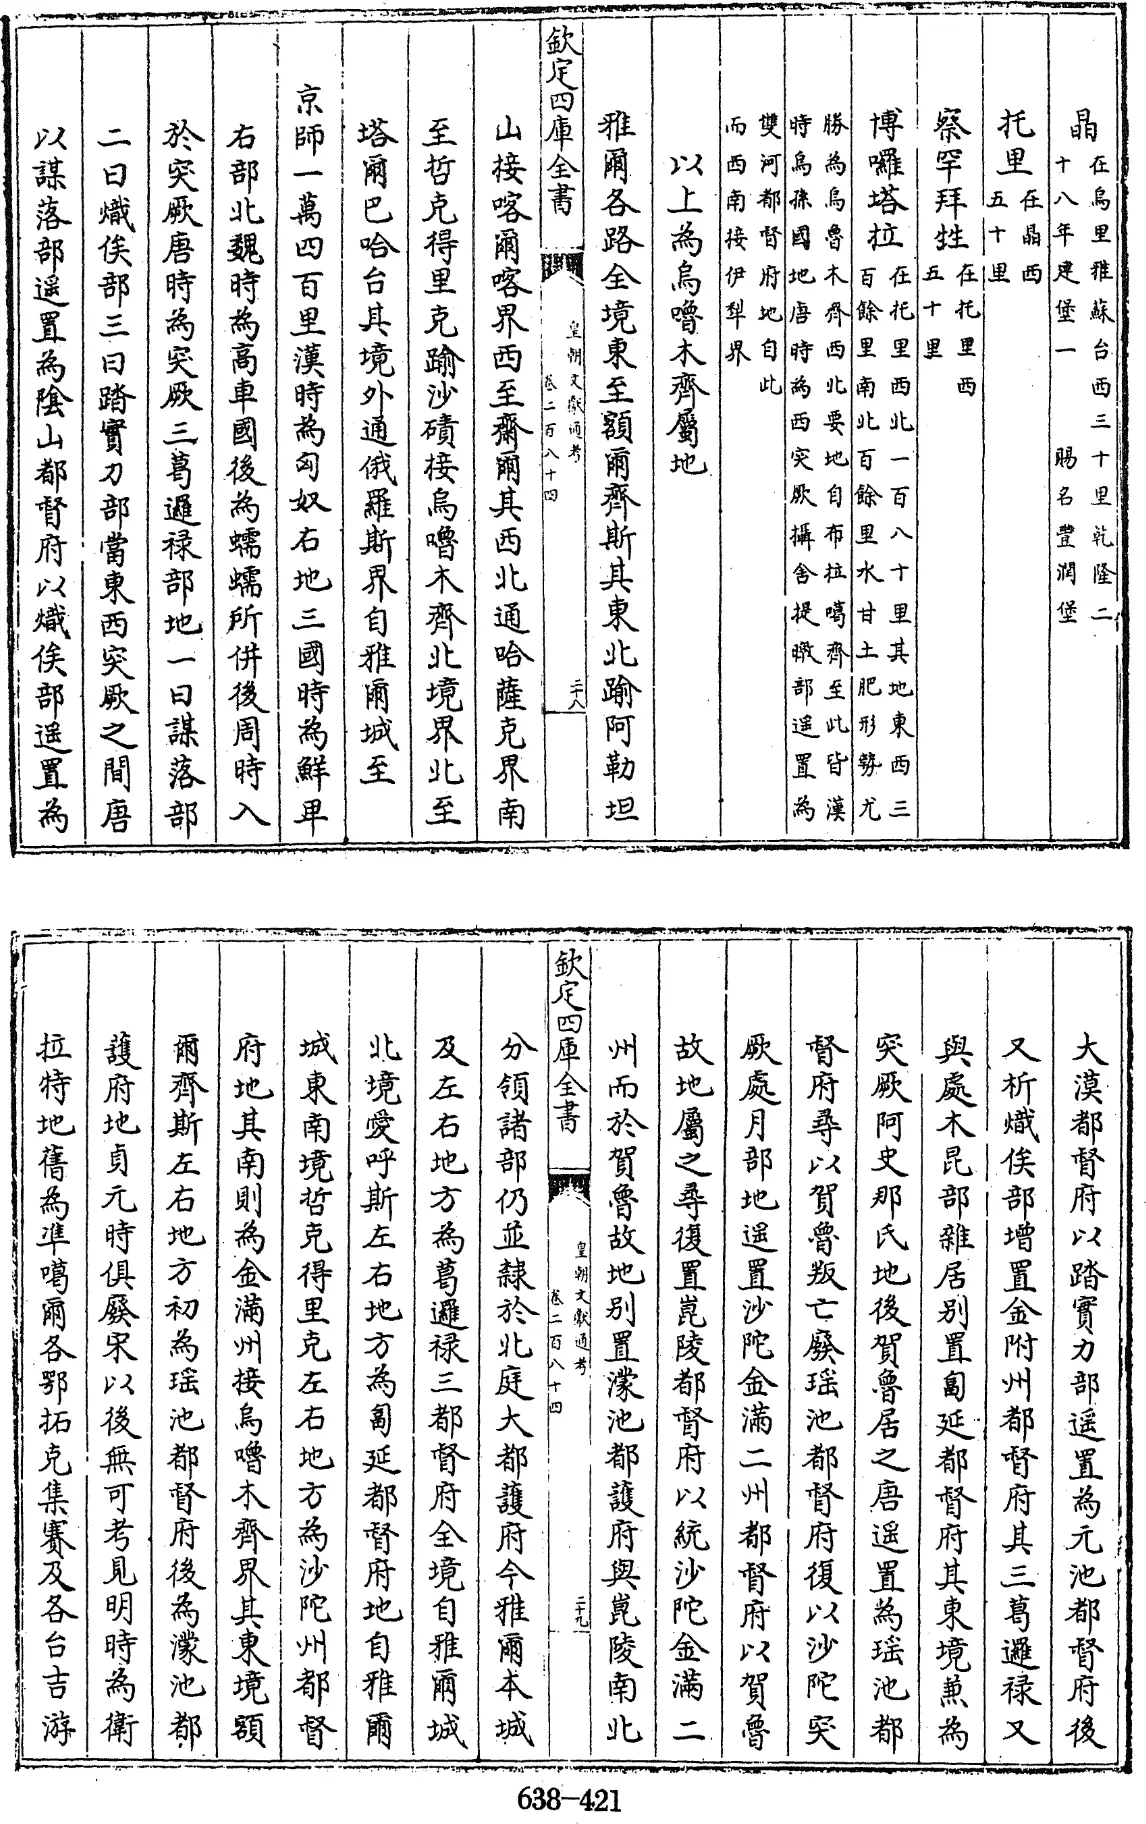 晶在烏里雅蘇台西三十里乾隆二十八年建堡一 賜名豐潤堡
托里在晶西五十里
察罕拜甡在托里西五十里
博囉塔拉在托里西北一百八十里其地東西三百餘里南北百餘里水甘土肥形勢尤
勝為烏魯木齊西北要地自布拉噶齊至此皆漢時烏孫國地唐時為西突厥攝舍提暾部遥置為
雙河都督府地自此而西南接伊犁界
以上為烏嚕木齊屬地
雅爾各路全境東至額爾齊斯其東北踰阿勒坦
欽定四庫全書
皇朝文獻通考
卷二百八十四
二十八
山接喀爾喀界西至齋爾其西北通哈薩克界南
至哲克得里克踰沙磧接烏嚕木齊北境界北至
塔爾巴哈台其境外通俄羅斯界自雅爾城至
京師一萬四百里漢時為匈奴右地三國時為鮮卑
右部北魏時為高車國後為蠕蠕所併後周時入
於突厥唐時為突厥三葛邏禄部地一曰謀落部
二曰熾俟部三曰踏實刀部當東西突厥之間唐
以謀落部遥置為陰山都督府以熾俟部遥置為
大漠都督府以踏實力部遥置為元池都督府後
又析熾俟部增置金附州都督府其三葛邏禄又
與處木昆部雜居别置匐延都督府其東境兼為
突厥阿史那氏地後賀魯居之唐遥置為瑶池都
督府尋以賀魯叛亡廢瑶池都督府復以沙陀突
厥處月部地遥置沙陀金滿二州都督府以賀魯
故地屬之尋復置崑陵都督府以統沙陀金滿二
州而於賀魯故地别置濛池都護府與崑陵南北
欽定四庫全書
皇朝文獻通考
卷二百八十四
二十九
分領諸部仍並隸於北庭大都護府今雅爾本城
及左右地方為葛邏禄三都督府全境自雅爾城
北境愛呼斯左右地方為匐延都督府地自雅爾
城東南境哲克得里克左右地方為沙陀州都督
府地其南則為金滿州接烏嚕木齊界其東境額
爾齊斯左右地方初為瑶池都督府後為濛池都
護府地貞元時俱廢宋以後無可考見明時為衛
拉特地舊為準噶爾各鄂拓克集賽及各台吉游
638-421